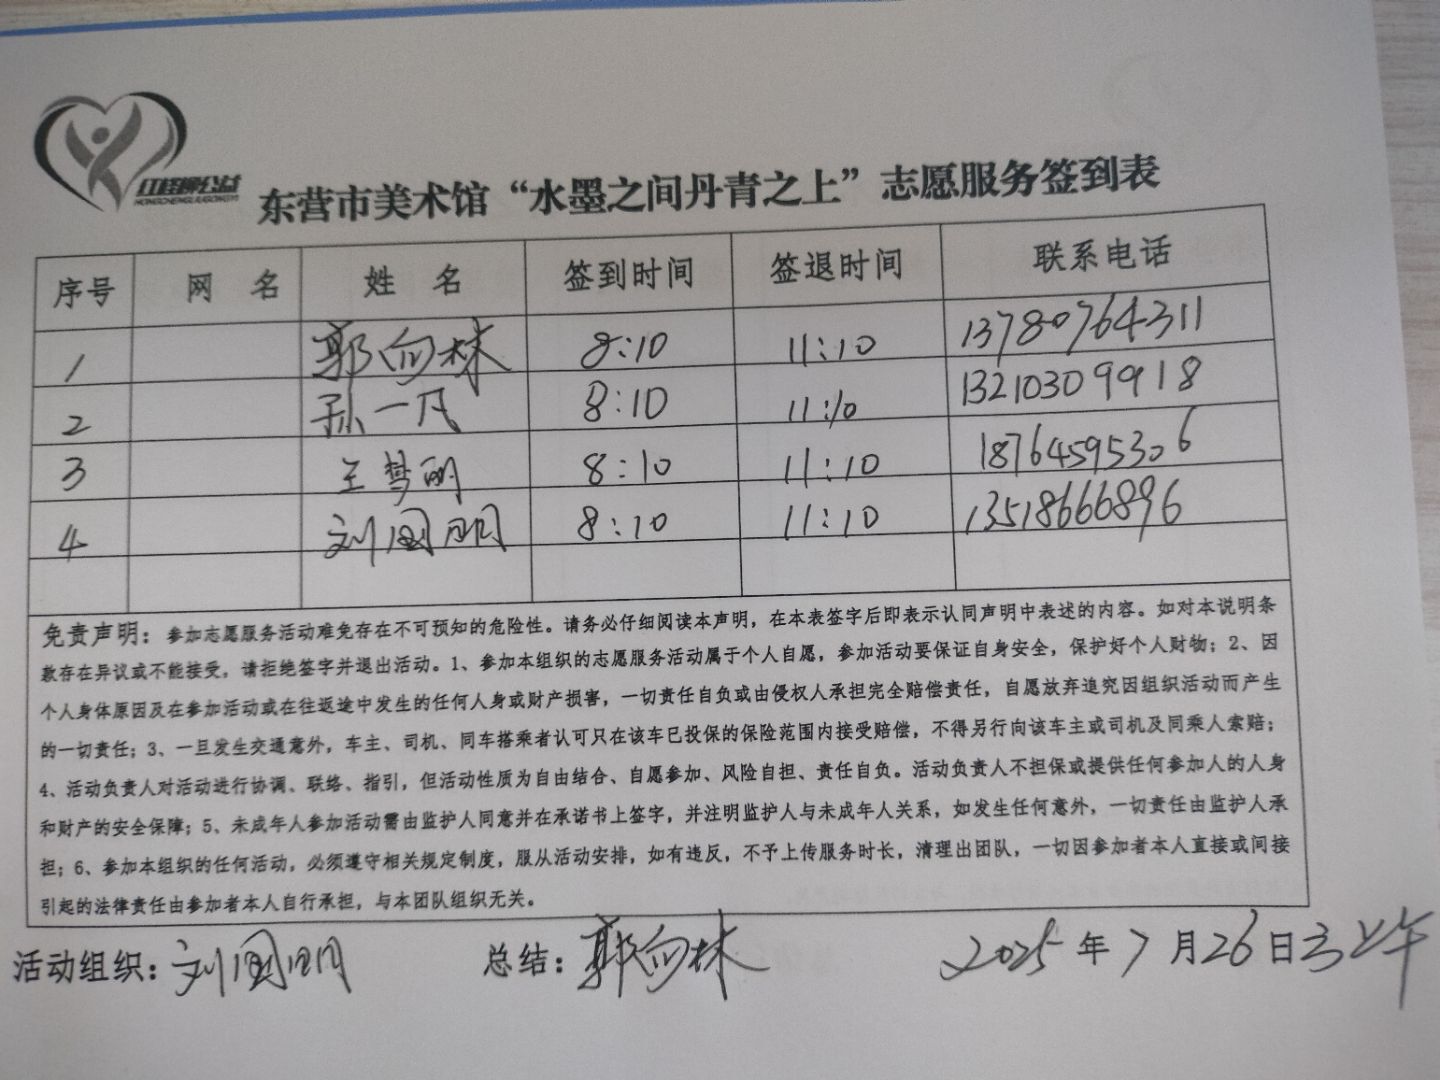 红柽柳公益
HONGCHENGLIUGONGYI
东营市美术馆“水墨之间丹青之上”志愿服务签到表
序号 网 名 姓 名 签到时间 签退时间 联系电话
1 郭向林 8:10 11:10 13780764311
2 孙一凡 8:10 11:10 13210309918
3 王梦丽 8:10 11:10 18764595306
4 刘国明 8:10 11:10 13518666896
免责声明：参加志愿服务活动难免存在不可预知的危险性。请务必仔细阅读本声明，在本表签字后即表示认同声明中表述的内容。如对本说明条
款存在异议或不能接受，请拒绝签字并退出活动。1、参加本组织的志愿服务活动属于个人自愿，参加活动要保证自身安全，保护好个人财物；2、因
个人身体原因及在参加活动或在往返途中发生的任何人身或财产损害，一切责任自负或由侵权人承担完全赔偿责任，自愿放弃追究因组织活动而产生
的一切责任；3、一旦发生交通意外，车主、司机、同车搭乘者认可只在该车已投保的保险范围内接受赔偿，不得另行向该车主或司机及同乘人索赔；
4、活动负责人对活动进行协调、联络、指引，但活动性质为自由结合、自愿参加、风险自担、责任自负。活动负责人不担保或提供任何参加人的人身
和财产的安全保障；5、未成年人参加活动需由监护人同意并在承诺书上签字，并注明监护人与未成年人关系，如发生任何意外，一切责任由监护人承
担；6、参加本组织的任何活动，必须遵守相关规定制度，服从活动安排，如有违反，不予上传服务时长，清理出团队，一切因参加者本人直接或间接
引起的法律责任由参加者本人自行承担，与本团队组织无关。
活动组织：刘国明 总结：郭向林 2025年7月26日上午